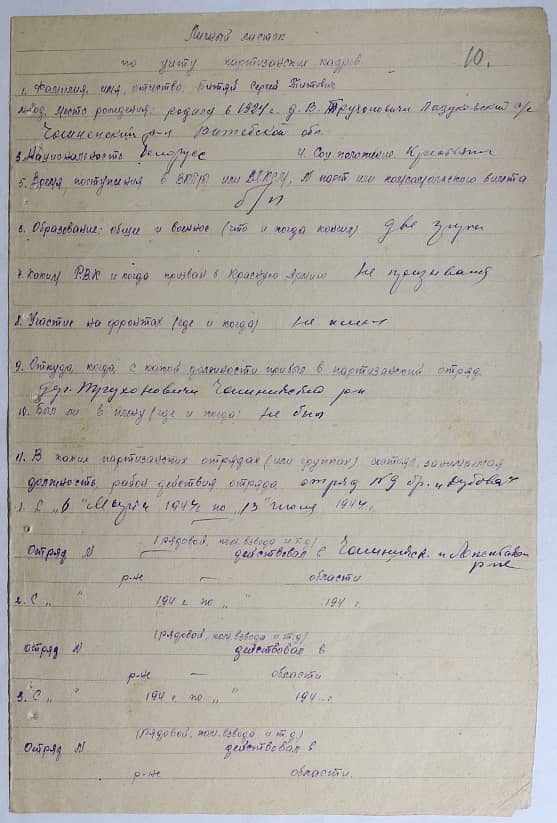 Личный листок
по учёту партизанских кадров.
10.
1. Фамилия, имя, отчество: Сергей Титович
Год, место рождения: родился в 1927 г. д. В. с/с
Чашникский р-н Витебской обл.
3. Национальность Белорус 4. Соц. положение. Крестьянин
5. Время поступления в ВКП(б) или ВЛКСМ, № парт или комсомольского билета
б/п
6. Образование: общее и военное (что и когда кончил) две группы
7. Каким РВК и когда призван в Красную Армию Не призывался
8. Участие на фронтах (где и когда) Не имел
9. Откуда, когда, с какой должности прибыл в партизанский отряд.
Чашникского р-н
10. Был ли в плену (где и когда) Не был
11. В каких партизанских отрядах (или группах) состоял, занимаемая
должность, район действия отряда отряд № 9 бр. Дубова
1. С "6" 1944 г по "13" июня 1944 г.
(рядовой, ком. взвода и т.д)
Отряд № действовал в Чашникск. и
р-не
р-не — области
2. С " " 194 г по " " 194 г.
(рядовой, ком. взвода и т.д)
Отряд № действовал в
р-не — области
3. С " " 194 г по " " 194 г.
(Рядовой, ком. взвода и т.д)
Отряд № действовал в
р-не области.